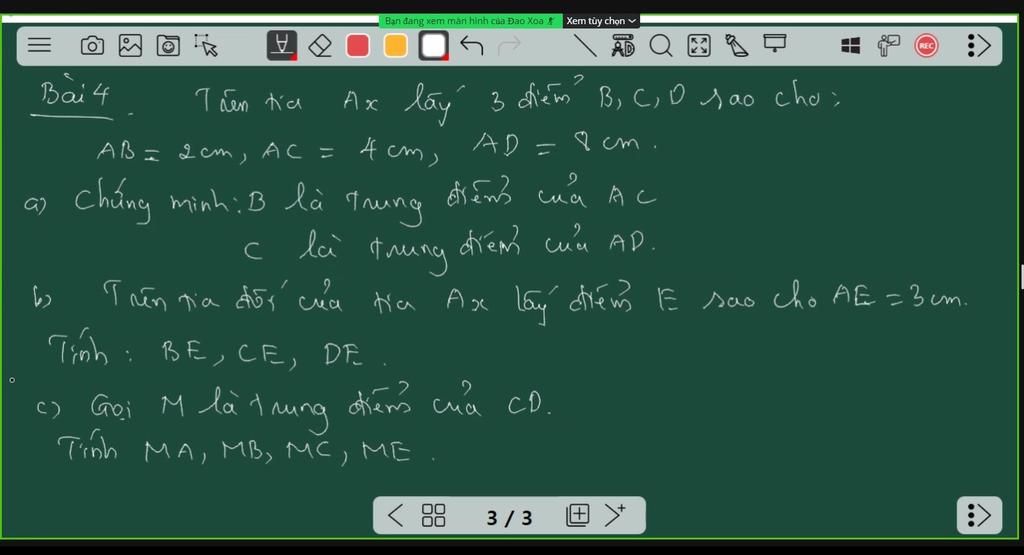 Bạn đang xem màn hình của Đao Xoa
Xem tùy chọn
REC
Bài 4. Trên tia Ax lấy 3 điểm B, C, D sao cho:
AB = 2cm, AC = 4cm, AD = 8cm.
a) Chứng minh: B là trung điểm của AC
C là trung điểm của AD.
b) Trên tia đối của tia Ax lấy điểm E sao cho AE = 3cm.
Tính: BE, CE, DE.
c) Gọi M là trung điểm của CD.
Tính MA, MB, MC, ME.
3 / 3